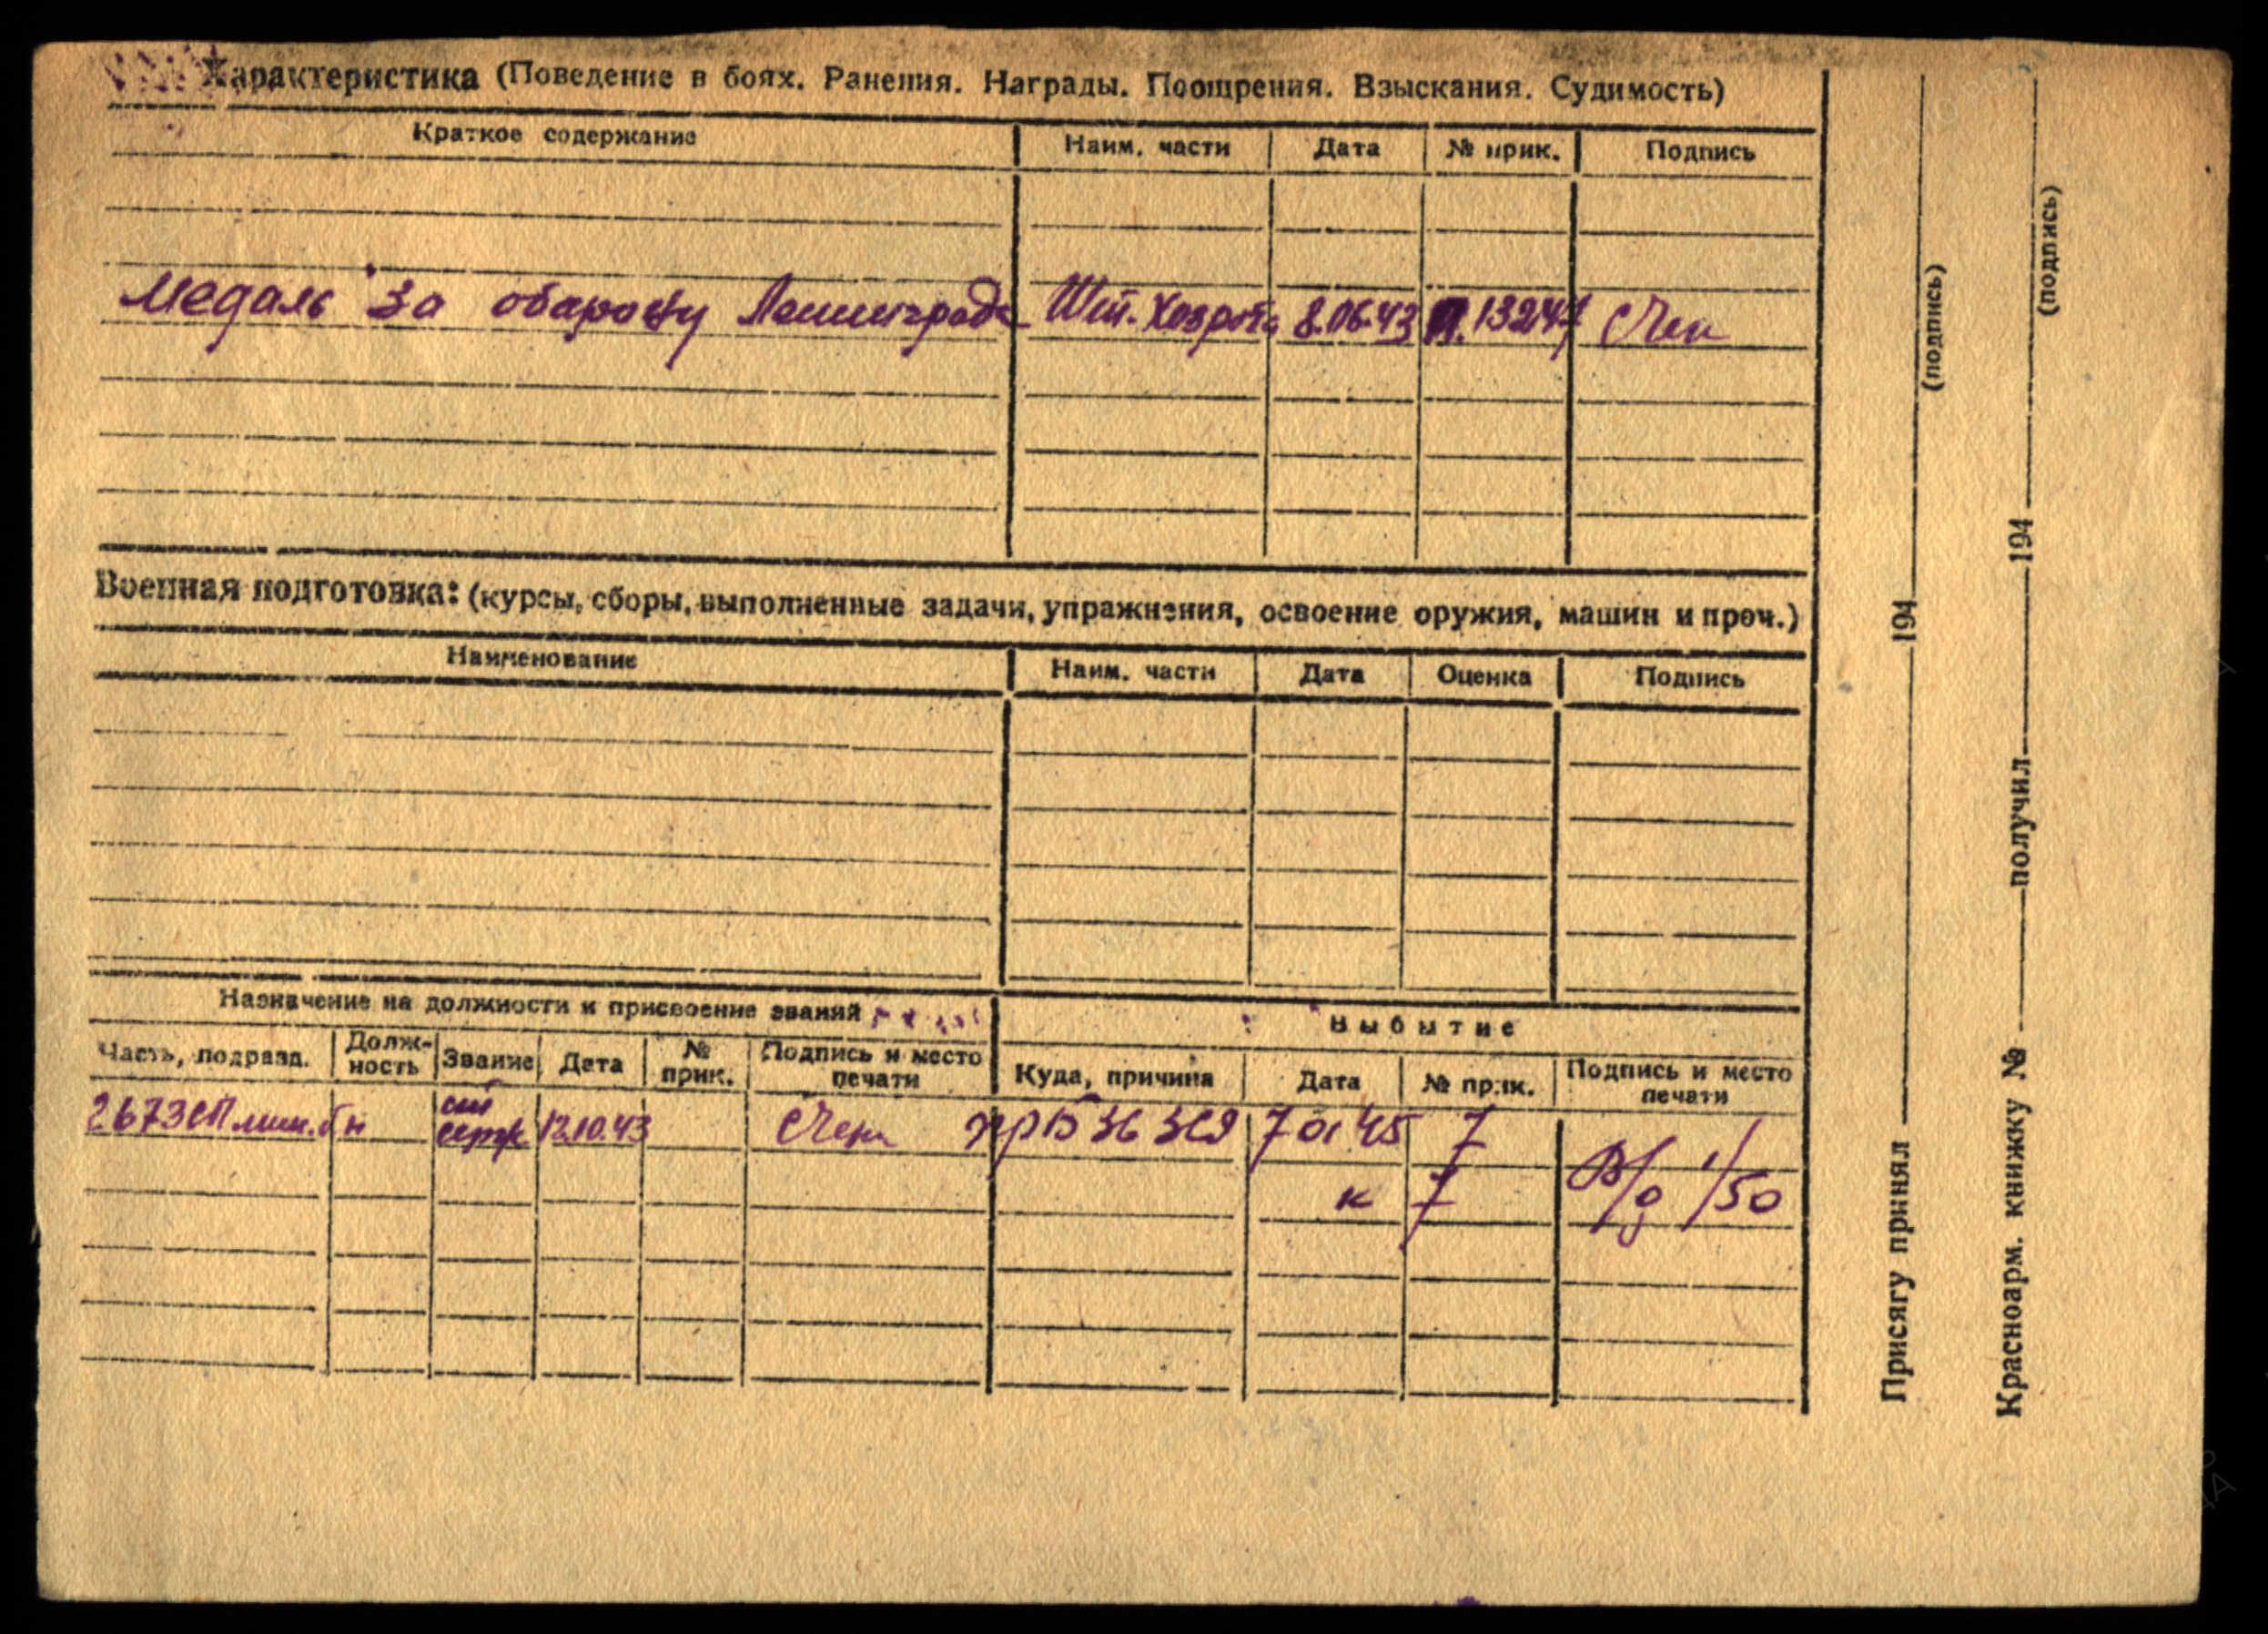 Характеристика (Поведение в боях. Ранения. Награды. Поощрения. Взыскания. Судимость)
Краткое содержание Наим. части Дата № прик. Подпись
Медаль "За обарону Ленинграда Шт. Хозрота 8.06.43 П.13214
Военная подготовка: (курсы, сборы, выполненные задачи, упражнения, освоение оружия, машин и проч.)
Наименование Наим. части Дата Оценка Подпись
Назначение на должности и присвоение званий
Выбытие
Часть, подразд. Долж-ность Звание Дата № прик. Подпись и место печати Куда, причина Дата № прик. Подпись и место печати
267 ЗСП мин. б н ст серж 12.10.43 36 ЗСД 7 01 45 7
к 7 1/50
Присягу принял 194
(подпись)
Красноарм. книжку № получил 194
(подпись)